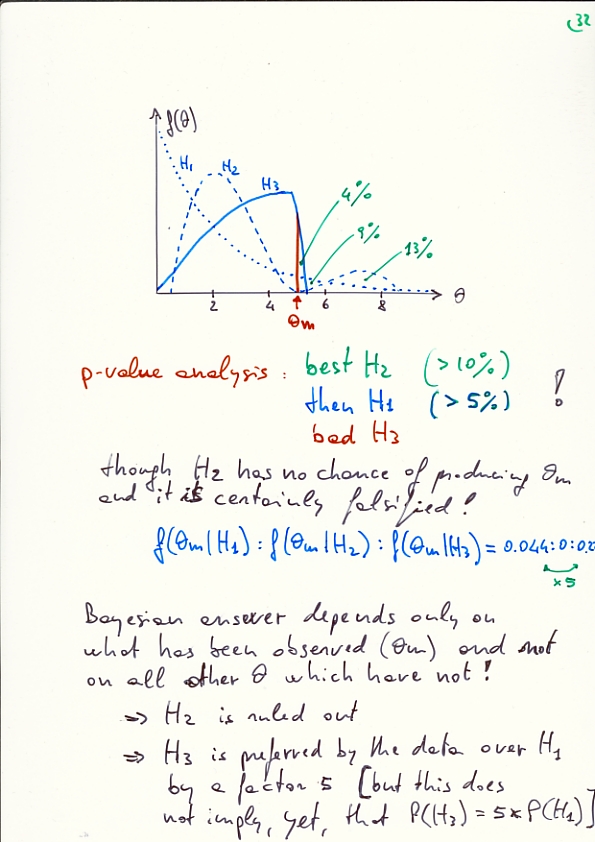 32
f(θ)
H1
H2
H3
4%
9%
13%
2
4
6
8
θ
θm
p-value analysis: best H2 (>10%)
then H1 (>5%) !
bad H3
though H2 has no chance of producing θm
and it is certainly falsified!
f(θm|H1) : f(θm|H2) : f(θm|H3) = 0.044:0:0.2
x5
Bayesian answer depends only on
what has been observed (θm) and not
on all other θ which have not!
⇒ H2 is ruled out
⇒ H3 is preferred by the data over H1
by a factor 5 [but this does
not imply, yet, that P(H3) = 5×P(H1)]